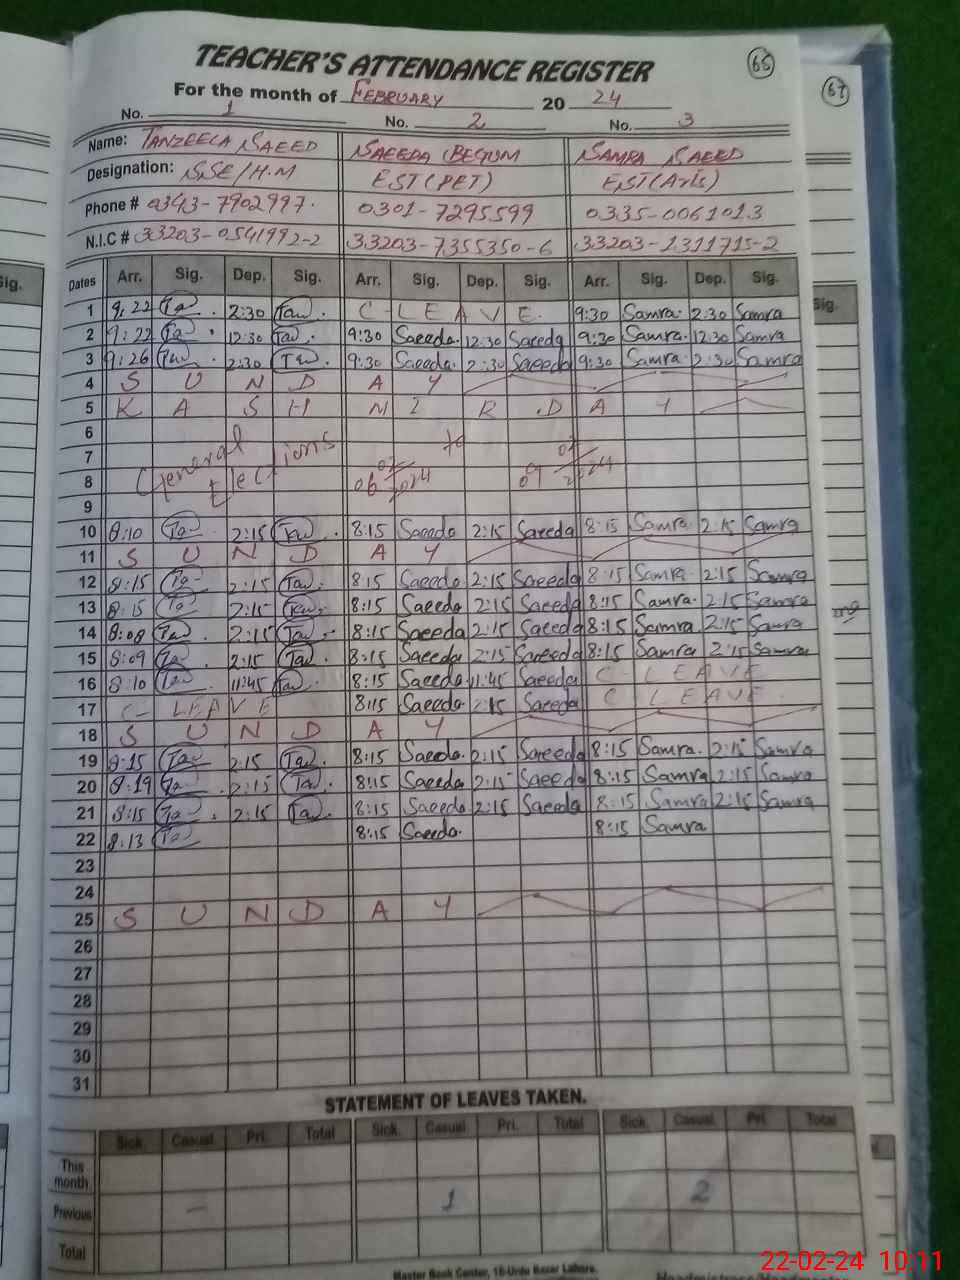 TEACHER'S ATTENDANCE REGISTER
65
67
For the month of FEBRUARY 20 24
No. 1 No. 2 No. 3
Name: TANZEELA SAEED SAEEDA BEGUM SAMRA SAEED
Designation: SSE/H.M EST(PET) EST(Arts)
Phone # 0343-7902997. 0301-7295599 0335-0061013
N.I.C # 33203-0541992-2 33203-7355350-6 33203-1311715-2
Dates Arr. Sig. Dep. Sig. Arr. Sig. Dep. Sig. Arr. Sig. Dep. Sig.
Sig.
Sig.
1 9:22 2:30 C-LEAVE. 9:30 Samra. 2:30 Samra
2 9:22 12:30 9:30 Saeeda. 12:30 Saeeda 9:30 Samra. 12:30 Samra
3 9:26 2:30 9:30 Saeeda. 2:30 Saeeda 9:30 Samra. 2:30 Samra
4 S U N D A Y
5 K A S H M I R . D A Y
6
7 General Elections to
8 06 02/2024 09 02/2024
9
10 8:10 2:15 8:15 Saeeda 2:15 Saeeda 8:15 Samra 2:15 Samra
11 S U N D A Y
12 8:15 2:15 8:15 Saeeda 2:15 Saeeda 8:15 Samra. 2:15 Samra
13 8:15 2:15 8:15 Saeeda 2:15 Saeeda 8:15 Samra. 2:15 Samra
14 8:08 2:15 8:15 Saeeda 2:15 Saeeda 8:15 Samra 2:15 Samra
15 8:09 2:15 8:15 Saeeda 2:15 Saeeda 8:15 Samra 2:15 Samra
16 8:10 11:45 8:15 Saeeda 11:45 Saeeda C - LEAVE
17 C- LEAVE 8:15 Saeeda. 2:15 Saeeda C LEAVE.
18 S U N D A Y
19 8:15 2:15 8:15 Saeeda. 2:15 Saeeda 8:15 Samra. 2:15 Samra
20 8:19 2:15 8:15 Saeeda 2:15 Saeeda 8:15 Samra 2:15 Samra
21 8:15 2:15 8:15 Saeeda 2:15 Saeeda 8:15 Samra 2:15 Samra
22 8:13 8:15 Saeeda. 8:15 Samra
23
24
25 S U N D A Y
26
27
28
29
30
31
STATEMENT OF LEAVES TAKEN.
Sick Casual Pri. Total Sick. Casual Pri. Total Sick. Casual Pri. Total
This month
Previous - 1 2
Total
Master Book Center, 16-Urdu Bazar Lahore.
22-02-24 10:11